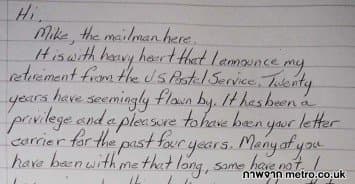 Hi,
Mike, the mailman here.
It is with heavy heart that I announce my
retirement from the US Postal Service. Twenty
years have seemingly flown by. It has been a
privilege and a pleasure to have been your letter
carrier for the past four years. Many of you
have been with me that long, some have not. I
ภาพจาก metro.co.uk